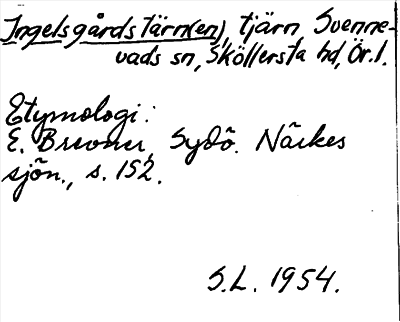 Ingelsgårdstärn(en), tjärn, Svenne-
vads sn, Sköllersta hd, Ör. l.
Etymologi:
E. Brevner, Sydö. Närkes
sjön., s. 152.
S.L. 1954.